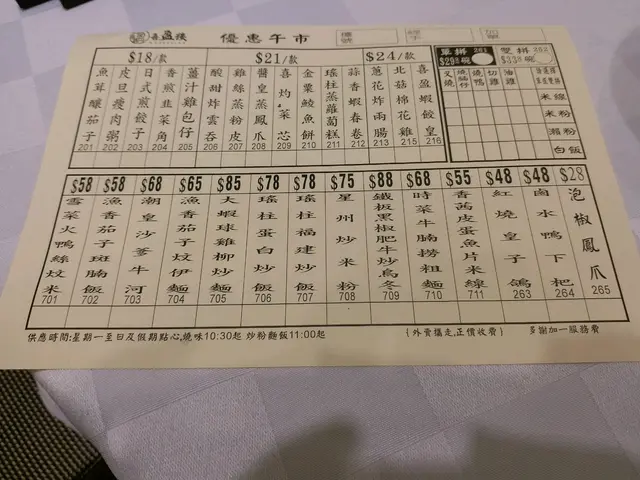 優惠午市
$18/款 $21/款 $24/款
魚茸釀茄子 201
皮旦瘦肉粥 202
日式煎餃子 203
香煎韭菜角 204
薑汁雞包仔 205
酸甜炸雲吞 206
雞絲蒸粉皮 207
醬皇蒸鳳爪 208
喜灼菜芯 209
金粟鯪魚餅 210
瑤柱蒸蘿蔔糕 211
蒜香蝦春卷 212
蔥花炸兩腸 213
北菇棉花雞 215
喜盈蝦餃皇 216
單拼 261
$298 碗
雙拼 262
$338 碗
叉燒
燒腩仔
燒鴨
切雞
油雞
米線
米粉
瀨粉
白飯
$58 雪菜火鴨絲炆米 701
$58 漁香茄子斑腩飯 702
$68 潮皇沙爹牛河 703
$65 漁香茄子炆伊麵 704
$85 大蝦球雞柳炒麵 705
$78 瑤柱蛋白炒飯 706
$78 瑤柱福建炒飯 707
$75 星州炒米粉 708
$88 鐵板黑椒肥牛炒烏冬 709
$68 時菜牛腩撈粗麵 710
$55 香茜皮蛋魚片米線 711
$48 紅燒皇子鴿 263
$48 鹵水鴨下巴 264
$28 泡椒鳳爪 265
供應時間:星期一至日及假期點心,燒味10:30起 炒粉麵飯11:00起
(外賣攜走,正價收費)
多謝加一服務費